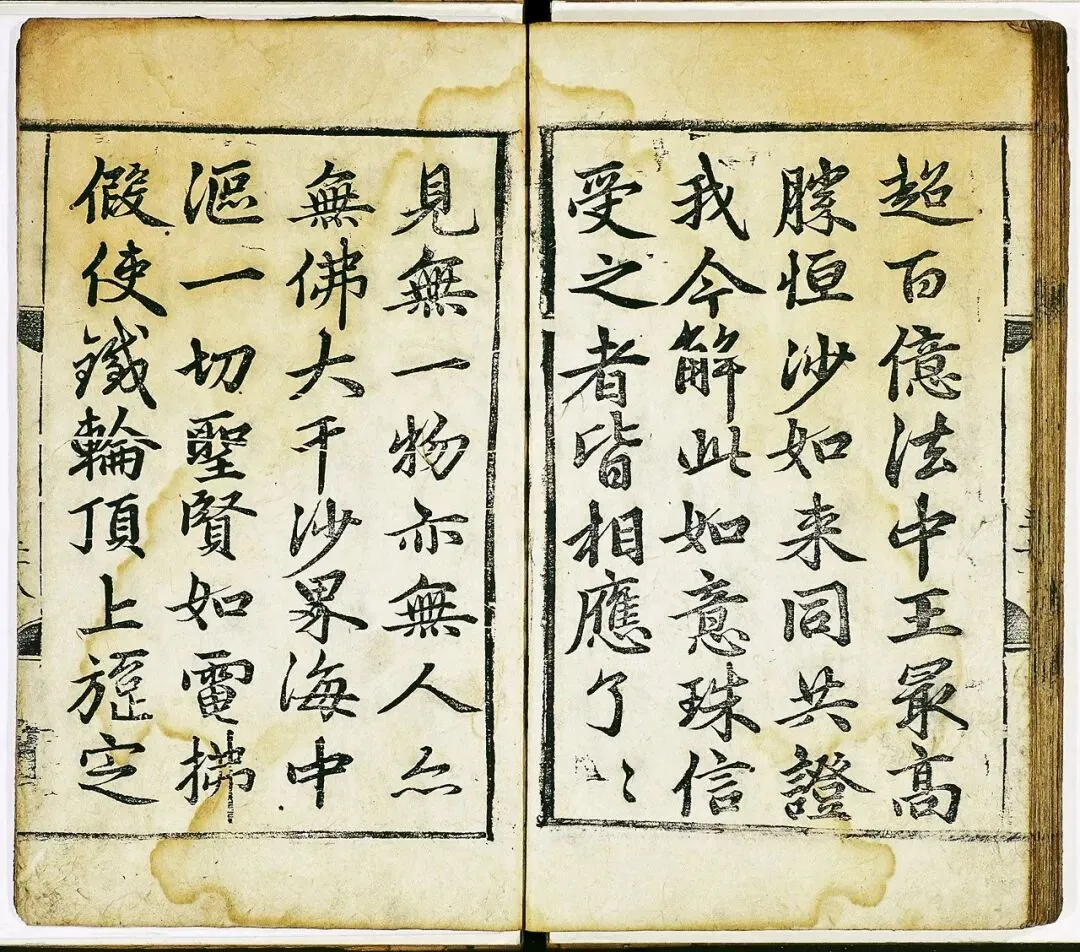 超百億法中王最高
勝恒沙如来同共證
我今解此如意珠信
受之者皆相應了〻
見無一物亦無人亦
無佛大千沙界海中
漚一切聖賢如電拂
假使鐵輪頂上旋定